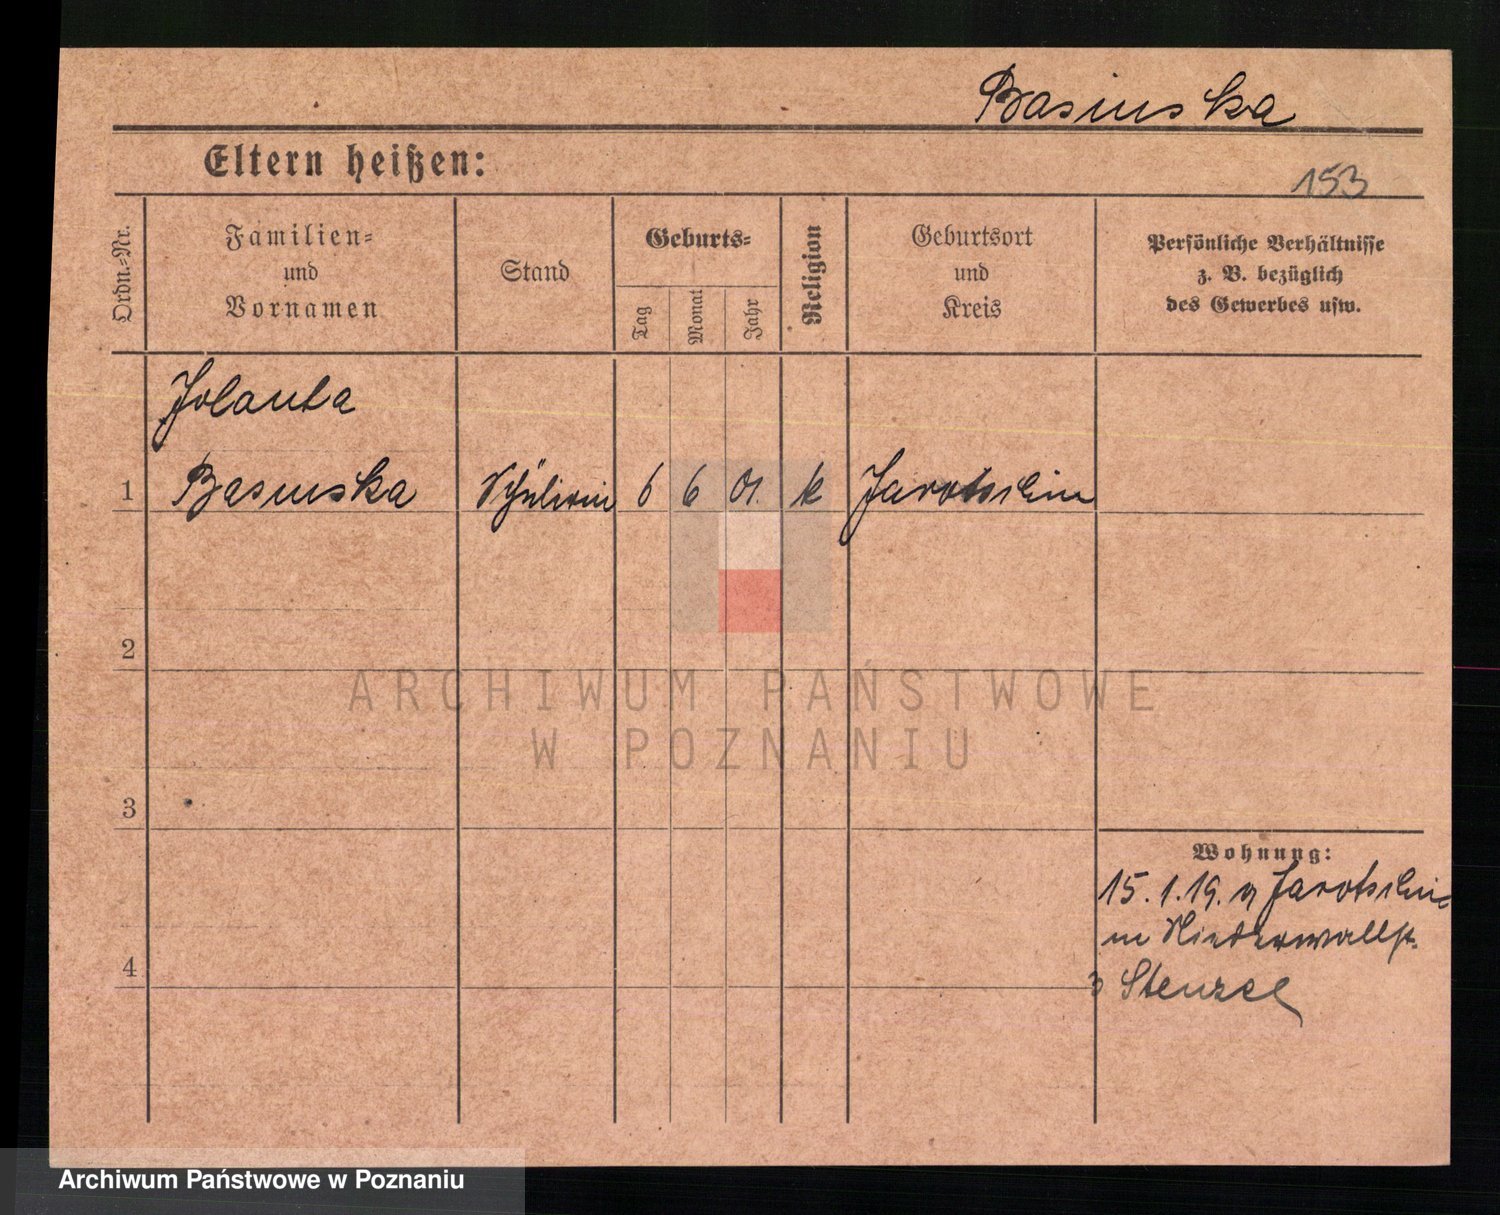 Basinska
Eltern heißen:
153
Ordn.-Nr.
Familien-
und
Vornamen
Stand
Geburts-
Tag
Monat
Jahr
Religion
Geburtsort
und
Kreis
Persönliche Verhältnisse
z. B. bezüglich
des Gewerbes usw.
Jolanta
1 Basinska Schülerin 6 6 01. k Jarotschin
2
ARCHIWUM PAŃSTWOWE
W POZNANIU
3
Wohnung:
15.1.19. Jarotschin
Niederwallst.
4
3 Stenzel
Archiwum Państwowe w Poznaniu